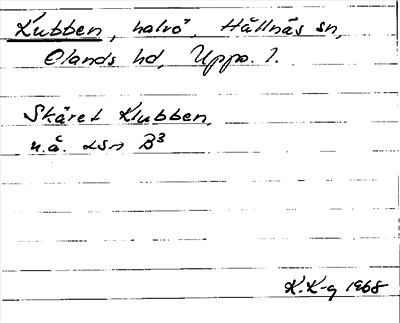 Kubben, halvö, Hållnäs sn,
Olands hd, Upps. l.
Skäret Klubben,
n.å. LSA B3
K.K-g 1968